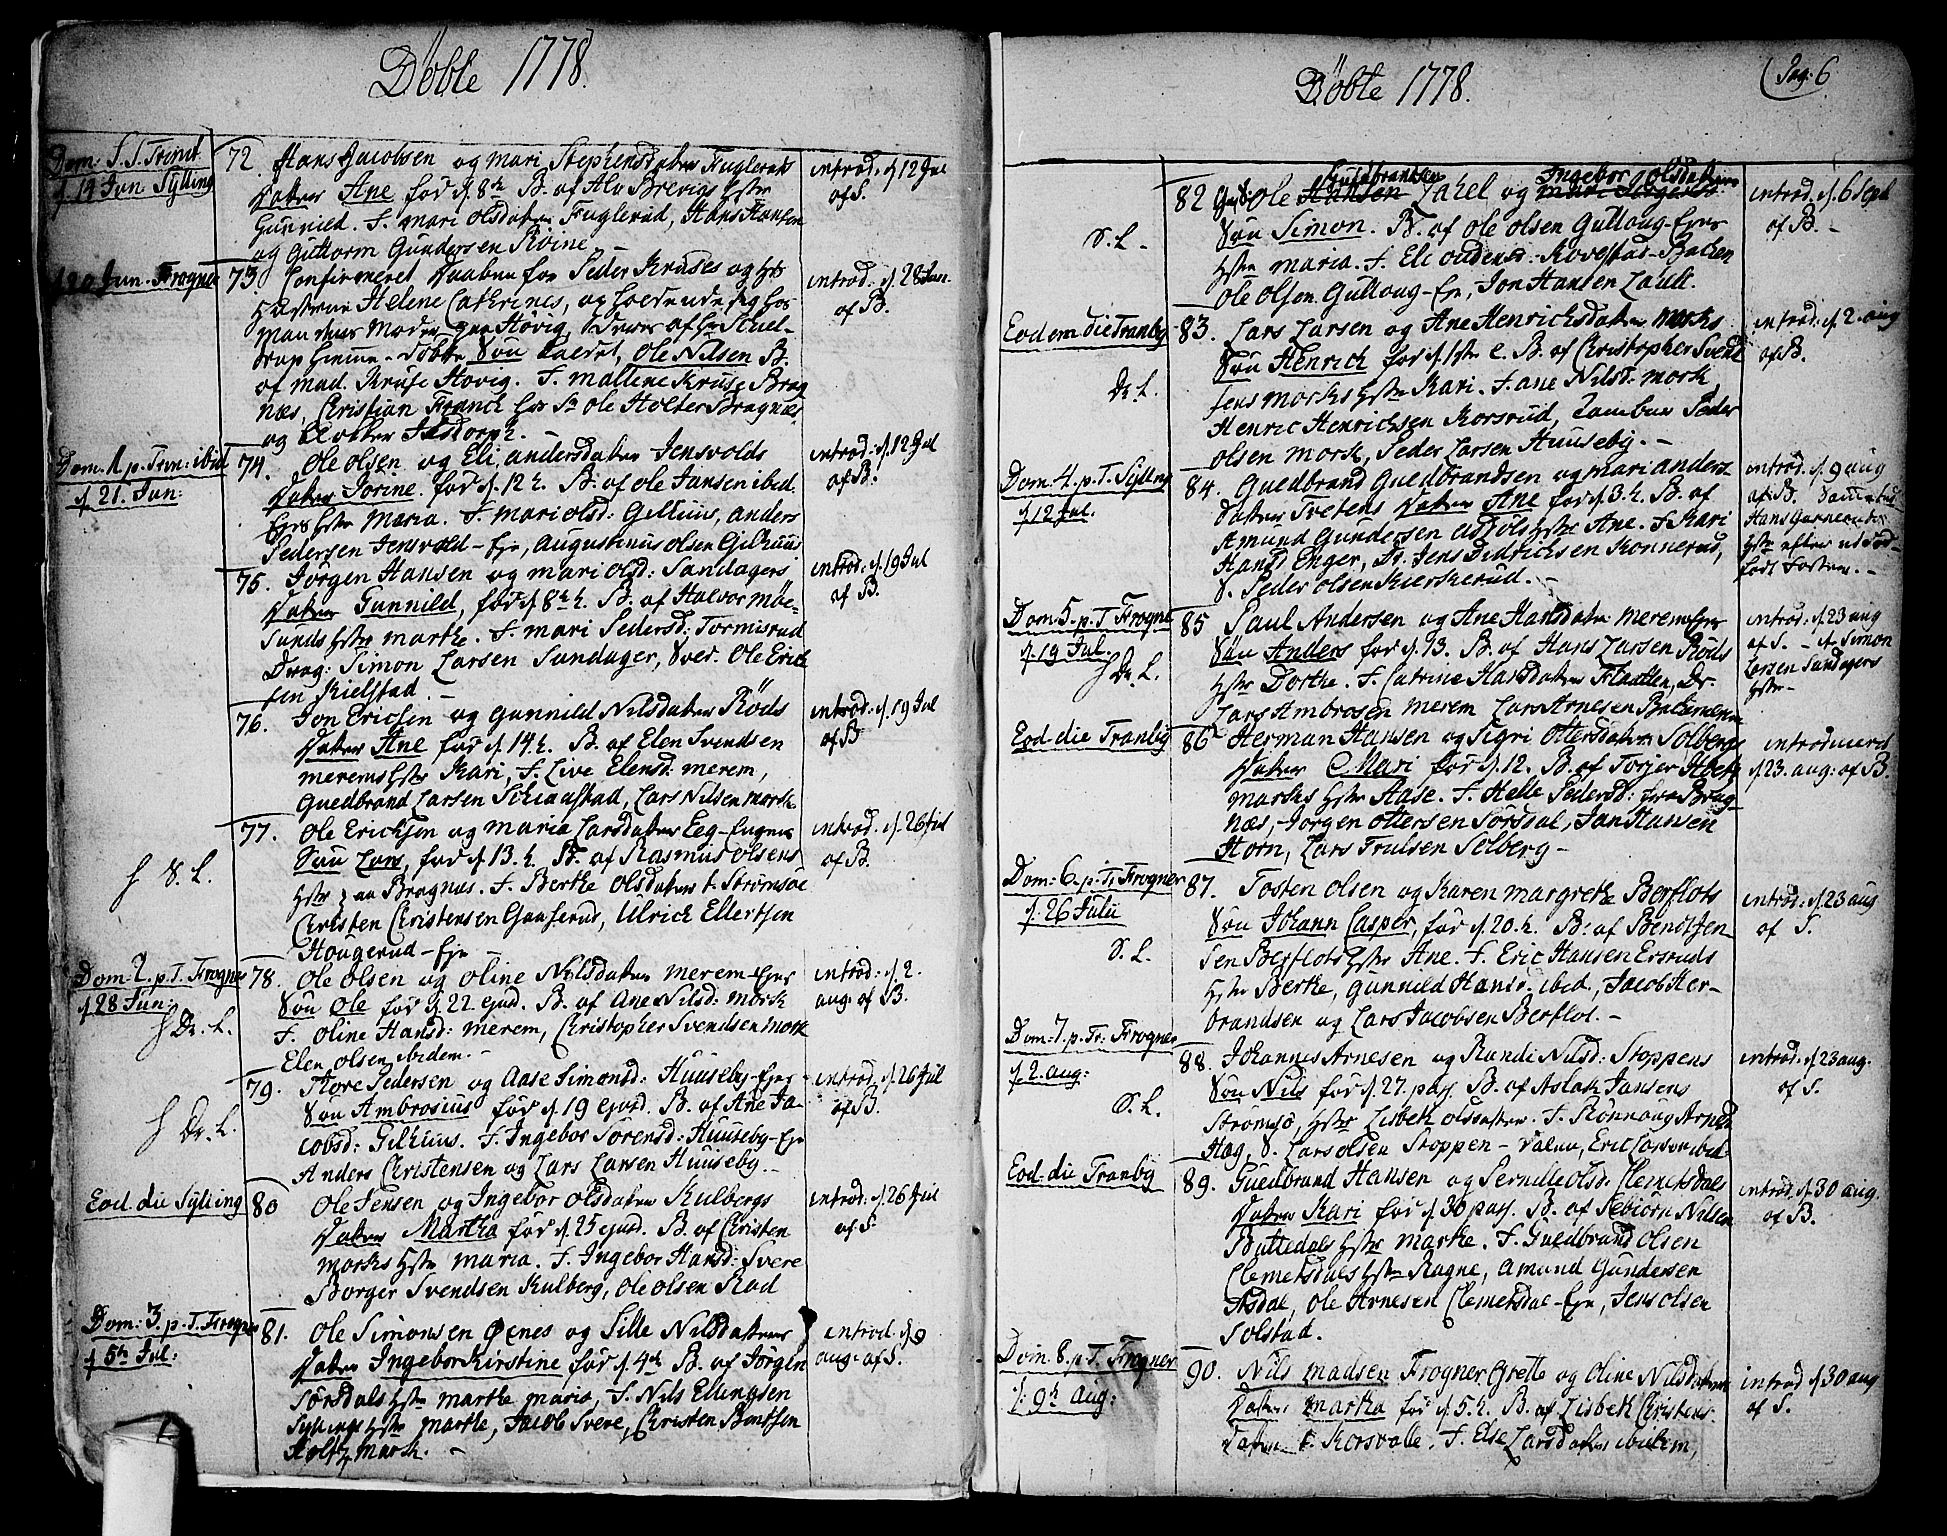 Döbte 1778.
Dom: S. S. Trinit.
d. 14 Jun. Sylling
72. Hans Jacobsen og Mari Stephensdatter Fuglerøds
Datter Ane før d. 8de B. af Alv Brevigs Hstr
Gunnild. F. Mari Olsdatter Fuglerud, Hans Hansen
og Guttorm Gundersen Röine.
introd. d. 12 Jul
af S.
d. 20 Jun. Frogner
73 Confirmeret Daaben for Peder Kruses og Hs
Hustrue Helene Cathrines, og
Mands Moder paa Hövig,
Döbte Sön kaldet, Ole Nilsen B.
af Mad. Kruse Hövig. F. Mallene Kruse Brag
næs, Christian Franck hos Sr Ole Holter Bragnæs
og
introd: d. 28 Jun.
af B.
Dom. 1 p. Trin: ibid
d. 21. Jun:
74. Ole Olsen og Eli Andersdatter Jensvolds
Datter Jorine. før d. 12 h. B. af Ole Jansen ibid.
Ejes Hstr Maria. F. Mari Olsd: Gilhuus, Anders
Pedersen Jensvold-Eje, Augustinus Olsen Gilhuus
introd: d. 12 Jul
af B.
75. Jörgen Hansen og Mari Olsd: Sandagers
Datter Gunnild, før d. 8de h. B. af Halvor Möe-
Sunds Hstr Marthe. F. Mari Pedersd: Tormisrud
Drag: Simon Larsen Sundager, Sver. Ole Erick
sen Kielstad. -
introd: d. 19 Jul
af B.
76. Jon Ericksen og Gunnild Nilsdatter Röds
Datter Ane før d. 14. h. B. af Elen Svendsen
Merems Hstr Kari, F. Live Elensd: Merem,
Guedbrand Larsen Schaastad, Lars Nilsen Morsk
introd: d. 19 Jul
af B
77. Ole Erichsen og Maria Larsdatter Eeg-Eugnes
Sön Lars, før d. 13. h. B. af Rasmus Olsens
Hstr paa Bragnæs. F. Berthe Olsdatter t. Strömsöe
Christen Christensen Gaaserud, Ulrich Ellertsen
Hougerud-Eje -
S. L.
introd. d. 26 Jul
af B.
Dom. 2. p. T. Frogner
d. 28 Jun:
78. Ole Olsen og Oline Nilsdatter Merem-Ejes
Sön Ole før d. 22 ejusd. B. af Ane Nilsd: Morsk
F. Oline Hansd: Merem, Christopher Svendsen Morsk
Elen Olsen ibidem. -
Dr. L.
introd: d. 2.
aug: af B.
79. Thore Pedersen og Aase Simonsd: Huuseby-Ejes
Sön Ambrosius før d. 19 ejusd. B. af Ane Ja-
cobsd: Gilhuus. F. Ingebor Sörensd: Huuseby-Eje
Anders Christensen og Lars Larsen Huuseby. -
Dr. L.
introd: d. 26 Jul
af B.
Eod. die Sylling
80 Ole Jensen og Ingebor Olsdatter Kulbergs
Datter Martha før d. 25 ejusd. B. af Christen
Morsks Hstr Maria. F. Ingebor Hansd: Svere
Borger Svendsen Kulberg, Ole Olsen Rod
introd: d. 26 Jul
af S.
Dom: 3. p. T. Frogner
d. 5te Jul:
81. Ole Simonsen Öxnes og Sille Nilsdatters
Datter Ingebor Kirstine før d. 4de B. af Jörgen
Sörsdals Hstr Marthe Maria, F. Nils Ellingsen
Syllings Hstr Marthe, Jacob Svere, Christen Bentsen
Holtz Mark. -
introd. d. 9
aug: af S.
Döbte 1778.
Pag. 6
82 Ole Hansen Guldbrandsen Lahel og Ingebor Olsdatters
Sön Simon. B. af Ole Olsen Gulloug-Ejes
Hstr Maria. F. Eli Oudensd: Kovestad-Bachen
Ole Olsen Gulloug-Eje, Jon Hansen Lahell.
S. L.
introd: d. 6 Sept
af B. -
Eodem die Tranby
83. Lars Larsen og Ane Henrichsdatter Morsks
Sön Henrich før d. 1ste e. B. af Christopher Svend
sens Morsks Hstr Kari. F. Ane Nilsd: Morsk,
Henric Henrichsen Korsrud, Tambur Peder
Olsen Morsk, Peder Larsen Huuseby. -
Dr. L.
introd: d. 2. aug
af B.
Dom: 4. p. T. Sylling
d. 12 Jul.
84. Guedbrand Guedbrandsen og Mari Anders
datter Tvetens Datter Ane før d. 3. h. B. af
Amund Gundersen Asdöls Hstr Ane. F. Kari
Hansd Enger, Dr. Jens Didrichsen Konnerud,
S. Peder Olsen Kierskerud. -
introd. d. 9 aug
af B.
Hans
Hstr efter et Död-
födt Foster. -
Dom: 5. p. T. Frogner
d. 19 Jul.
85 Paul Andersen og Ane Hansdatter Merem Ejes
Sön Anders før d. 13. B. af Hans Larsen Röds
Hstr Dorthe. F. Catrine Hansdatter Flaatten, Dr.
Lars Ambrosen Merem Lars Arnesen Bache Merem
Dr. L.
introd: d. 23 aug
af S. - d. Simon
Larsen Sandagers
Hstr -
Eod. die Tranby
86 Herman Hansen og Sigri Ottersdatter Solbergs
Datter Mari før d. 12. B. af Torjer Hbek
Morsks Hstr Aase. F. Helle Pedersd: fra Brag-
næs, Jörgen Ottersen Sörsdal, Jan Hansen
Horn, Lars Trulsen Solberg -
introduceret
d. 23. aug: af B.
Dom: 6. p. Tr. Frogner
d. 26 Julii
87. Tosten Olsen og Karen Margrethe Berflots
Sön Johann Casper, før d. 20. h. B. af Bendt Jen-
sen Berflots Hstr Ane. F. Eric Hansen Ersruds
Hstr Berthe, Gunnild Hansd. ibid., Jacob Her-
brandsen og Lars Jacobsen Berflot. -
S. L.
introd: d. 23 aug
af S.
Dom: 7. p. Tr: Frogner
d. 2. aug:
88. Johannes Arnesen og Randi Nilsd: Stoppens
Sön Nils før d. 27. pass. B. af Aslak Jansens
Strömsö, Hstr Lisbeth Olsdatter. F. Rönnaug Arnesd
Hag, S. Lars Olsen Stoppen - Eric Larsen ibid.
S. L.
introd: d. 23 aug.
af S.
Eod. die Tranby
89. Guedbrand Hansen og Pernille Olsd: Clemetsdals
Datter Kari før d. 30 pass. B. af Sebjörn Nilsen
Buttedals Hstr Marthe. F. Guedbrand Olsen
Clemetsdals Hstr Ragne, Amund Gundersen
Asdöl, Ole Arnesen Clemetsdal-Eje, Jens Olsen
Solstad.
introd. d. 30 aug.
af B.
Dom. 8. p. T. Frogner
d. 9de Aug:
90. Nils Madsen Frogner Grette og Oline Nilsdatters
Datter Martha før d. 5. h. B. af Lisbeth Christens
datter t. Korsvolle. F. Else Larsdatter ibidem,
introd d. 30 aug
af S.